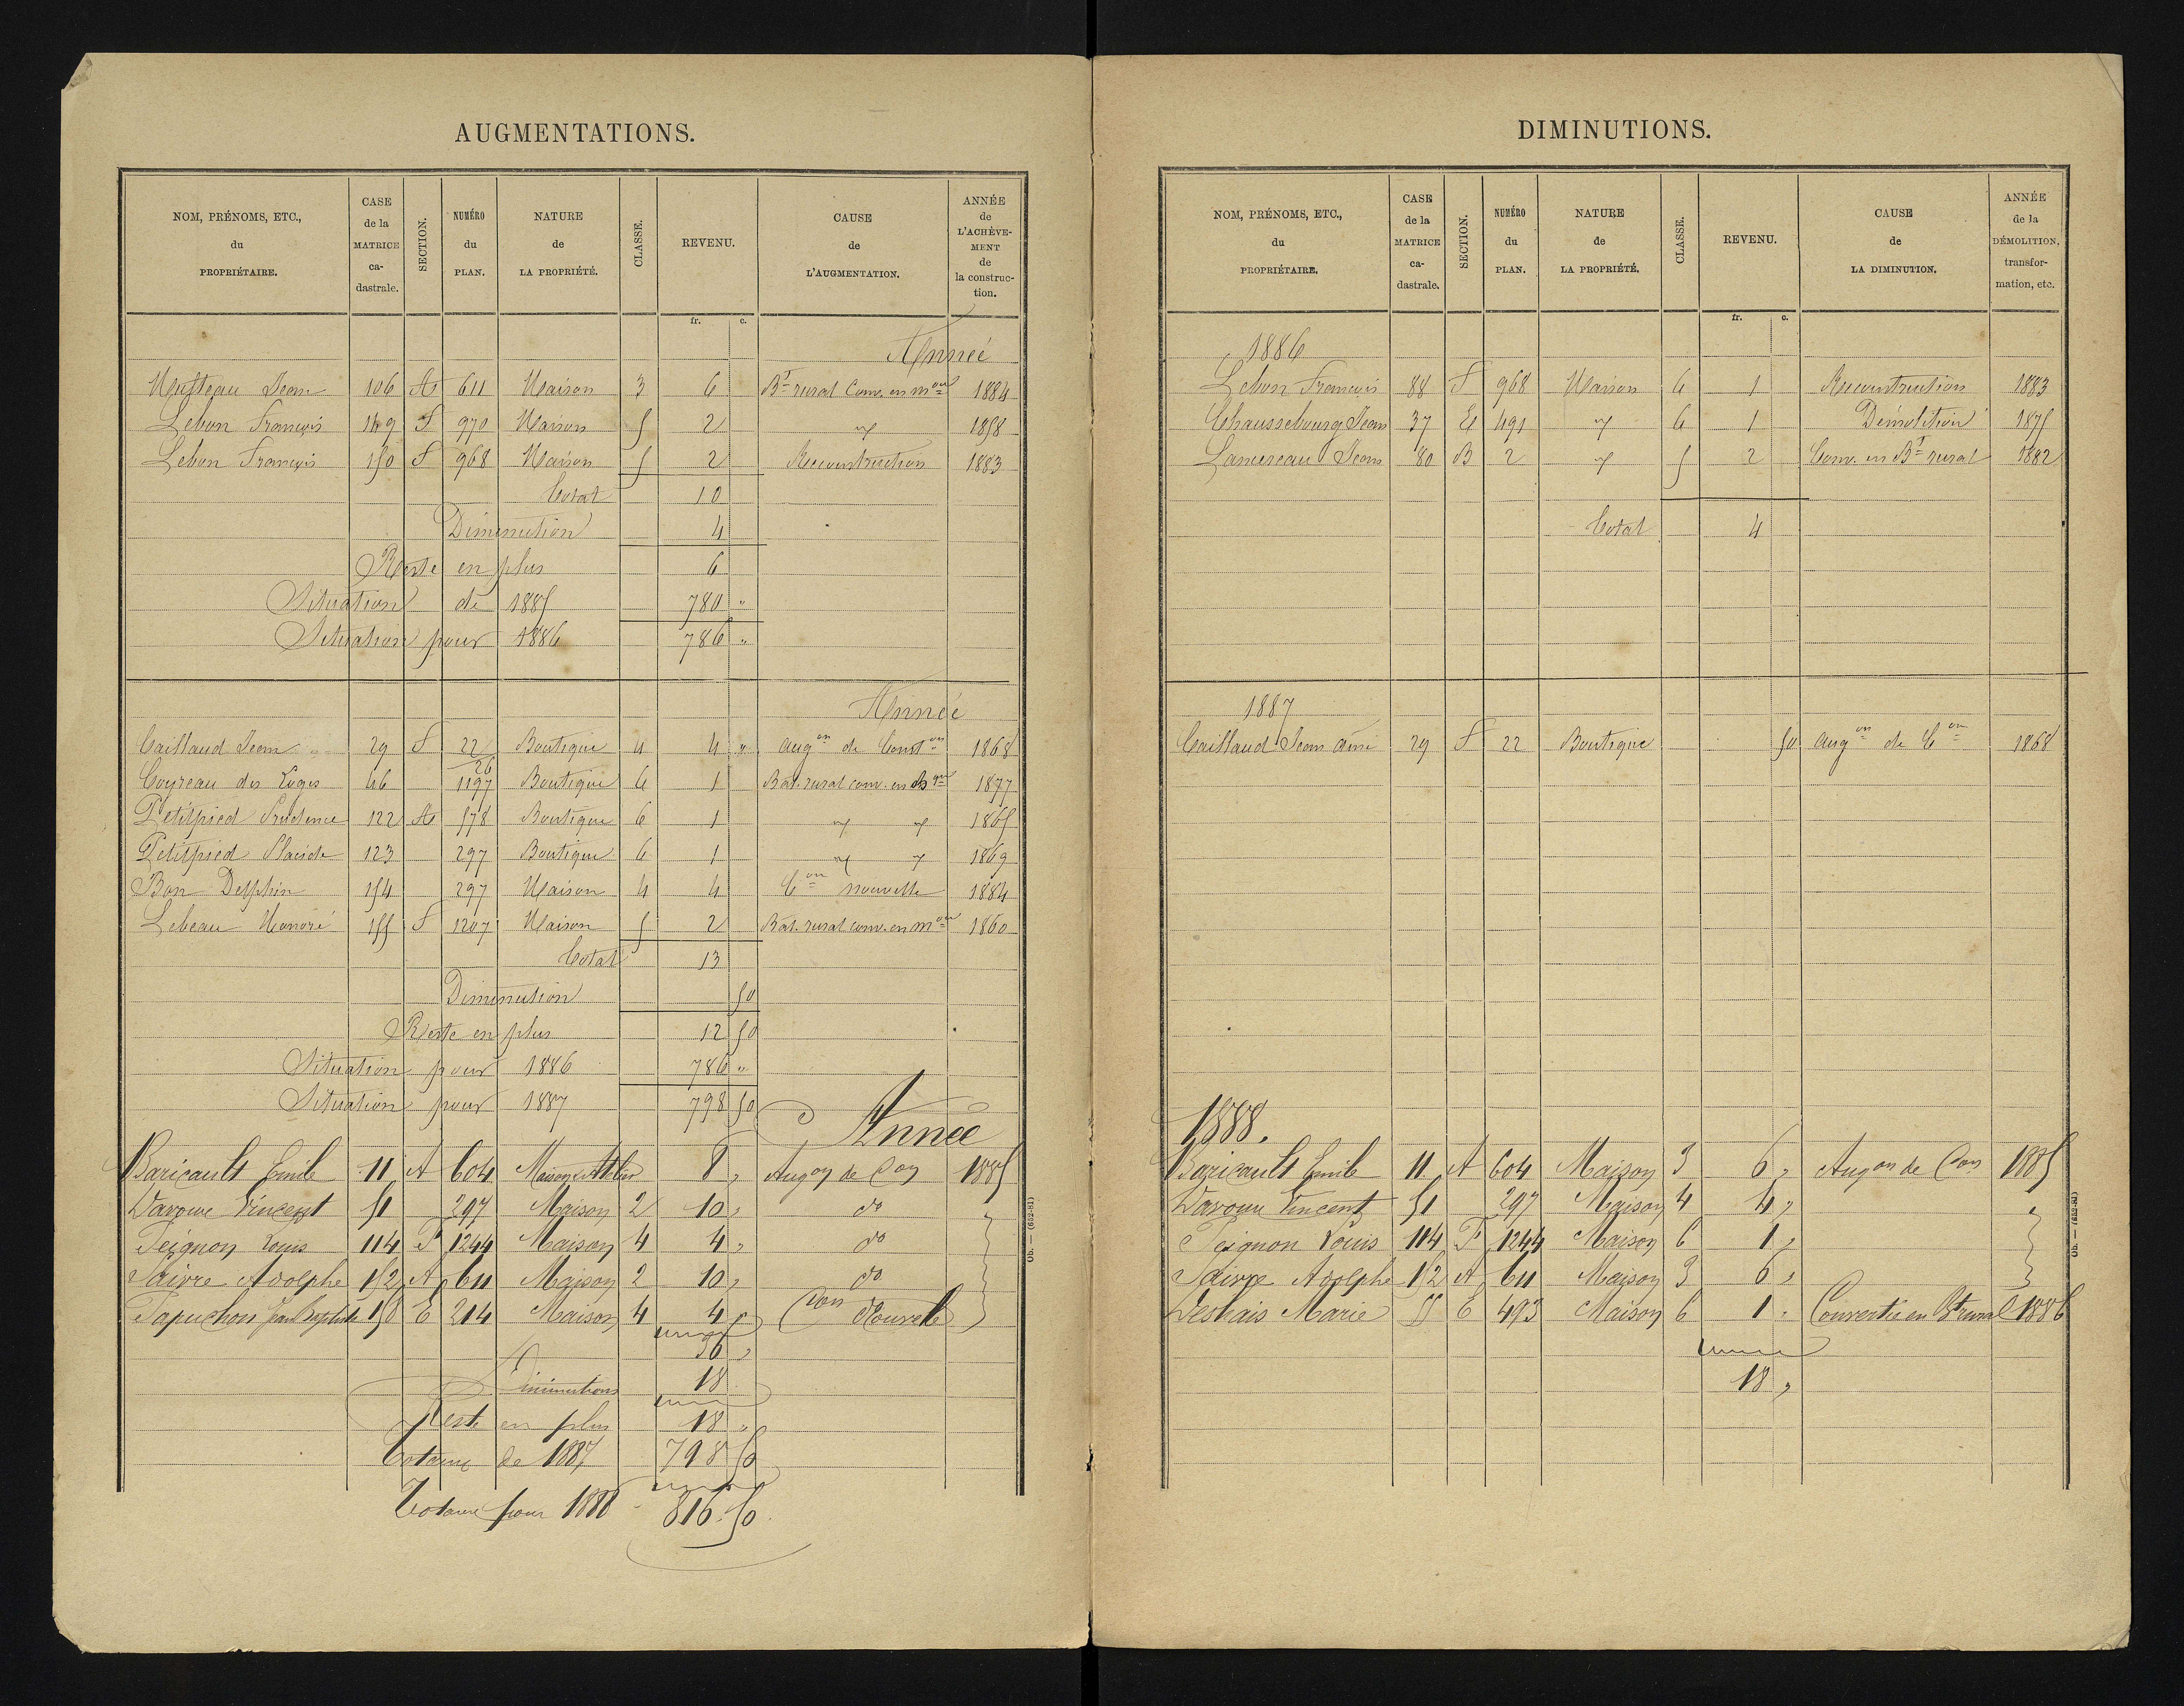 AUGMENTATIONS.
NOM, PRÉNOMS, ETC., du PROPRIÉTAIRE. CASE de la MATRICE ca-dastrale. SECTION. NUMÉRO du PLAN. NATURE de LA PROPRIÉTÉ. CLASSE. REVENU. CAUSE de L'AUGMENTATION. ANNÉE de L'ACHÈVE-MENT de la construc-tion.
fr. c.
Année
Jean 106 A 611 Maison 3 6 Bt rural Conv. en mon 1884
Lebon François 149 F 970 Maison 5 2 " 1858
Lebon François 150 F 968 Maison 5 2 Reconstruction 1883
Total 10
Diminution 4
Reste en plus 6
Situation de 1885 780 "
Situation pour 1886 786 "
Année
Caillaud Jean 29 F 22 Boutique 4 4 " augon de Conston 1868
Coyreau des Loges 46 26 1197 Boutique 6 1 Bat. rural conv. en 1877
Petitpied Prudence 122 A 578 Boutique 6 1 " " 1865
Petitpied Placide 123 297 Boutique 6 1 " " 1869
Bon Delphin 154 297 Maison 4 4 Con nouvelle 1884
Lebeau Honoré 155 F 1207 Maison 5 2 Bat. rural conv. en mon 1860
Total 13
Diminution 50
Reste en plus 12 50
Situation pour 1886 786 "
Situation pour 1887 798 50
Année
Baricault Emile 11 A 604 Maison et Atelier 8 , Augon de Con 1885
Vincent 51 297 Maison 2 10 , do
Peignon Louis 114 F 1244 Maison 4 4 , do
Saivre Adolphe 152 A 611 Maison 2 10 , do
Tapuchon Jean Baptiste 158 E 214 Maison 4 4 " Con Nouvelle
36 ,
Diminutions 18
Reste en plus 18 "
Totaux de 1887 798 50
Totaux pour 1888 816.50
Ob. — (652-81)
DIMINUTIONS.
NOM, PRÉNOMS, ETC., du PROPRIÉTAIRE. CASE de la MATRICE ca-dastrale. SECTION. NUMÉRO du PLAN. NATURE de LA PROPRIÉTÉ. CLASSE. REVENU. CAUSE de LA DIMINUTION. ANNÉE de la DÉMOLITION, transfor-mation, etc.
fr. c.
1886
Lebon François 88 F 968 Maison 6 1 Reconstruction 1883
Chaussebourg Jean 37 E 491 " 6 1 Démolition 1875
Lancereau Jean 80 B 2 " 5 2 Conv. en Bt rural 1882
Total 4
1887
Caillaud Jean aîné 29 F 22 Boutique 50 augon de Con 1868
1888.
Baricault Emile 11 A 604 Maison 3 6 , Augon de Con 1885
Vincent 51 297 Maison 4 4 ,
Peignon Louis 114 F 1244 Maison 6 1 ,
Saivre Adolphe 152 A 611 Maison 3 6 ,
Deshais Marie 55 E 493 Maison 6 1 . Convertie en Bt rural 1886
18 ,
Ob. — (652-81)